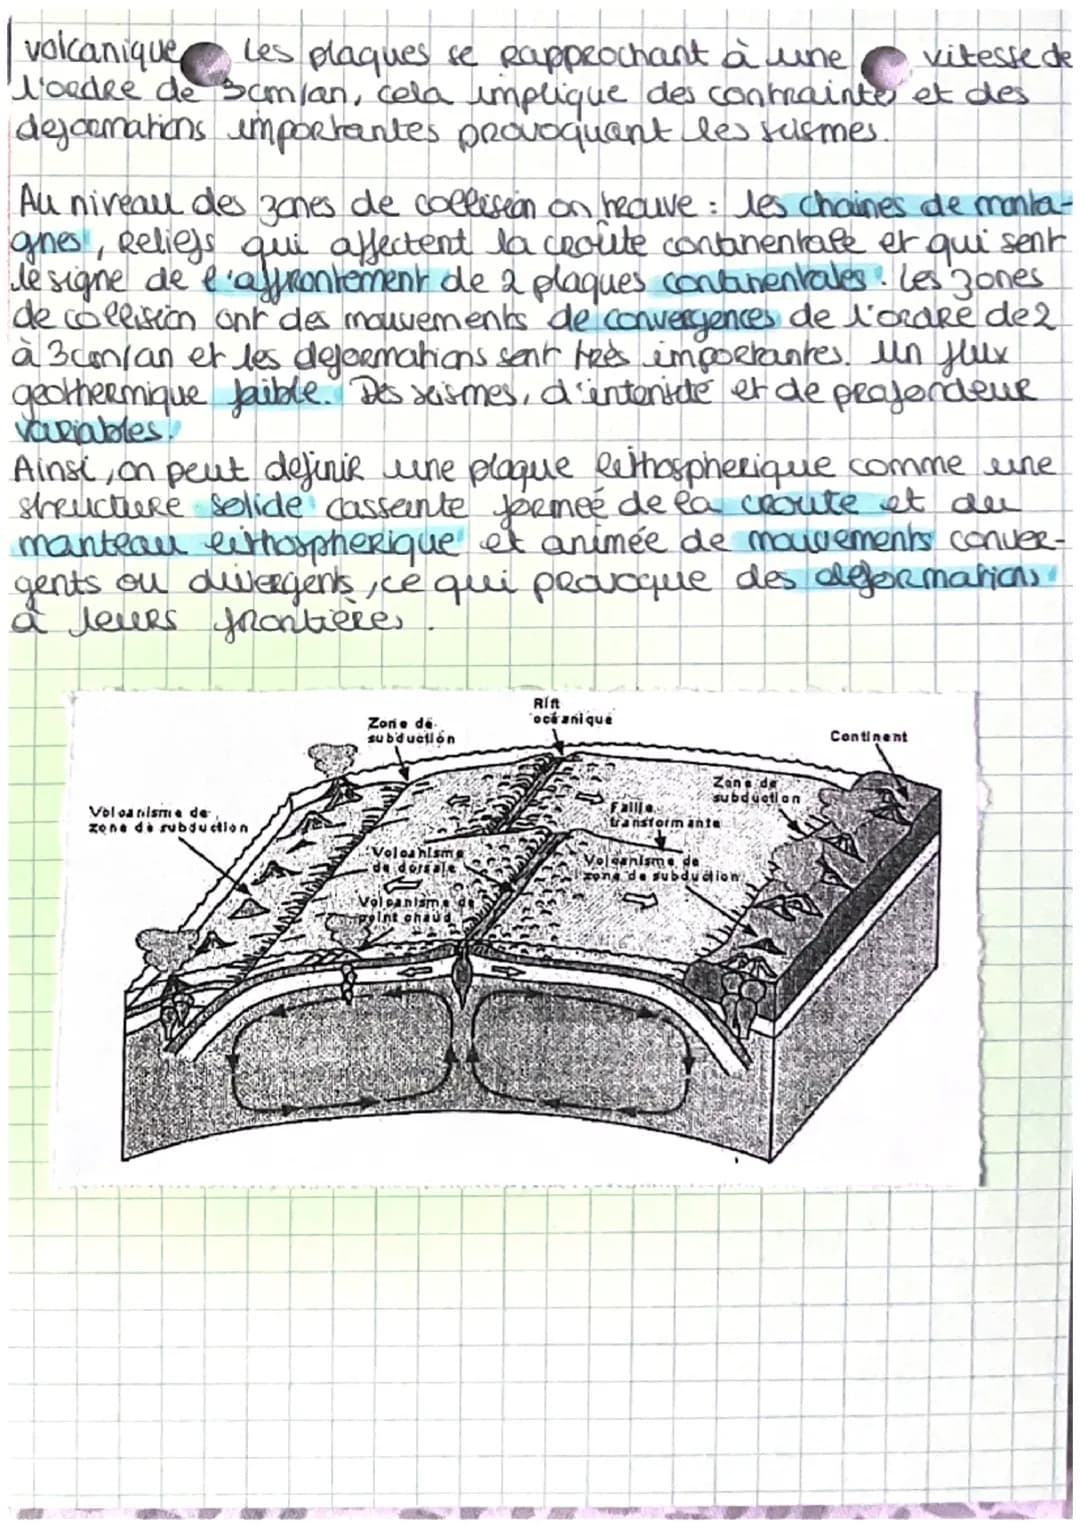 volcanique Les plaques se rapprochant à une vitesse de
l'ordre de 3cm/an, cela implique des contraintes et des
déformations importantes provoquant les séismes.
Au niveau des zones de collision on trouve : les chaines de monta-
gnes, reliefs qui affectent la croûte continentale et qui sont
le signe de l'affrontement de 2 plaques continentales. Les zones
de collision ont des mouvements de convergences de l'ordre de 2
à 3cm/an et les deformations sont très importantes. Un flux
geothermique faible. Des seismes, d'intensité et de profondeur
variables.
Ainsi, on peut definir une plaque lithospherique comme une
structure solide cassante formeé de la croute et du
manteau lithospherique et animée de mouvements conver-
gents ou divergents, ce qui provoque des deformations
à leurs frontières.
Rift
océanique
Zone de
subduction
Continent
Zone de
subduction
Volcanisme de
zone de subduction
Faille
transformante
Volcanisme
de dorsale
Volcanisme de
zone de subduction
Volcanisme de
point chaud